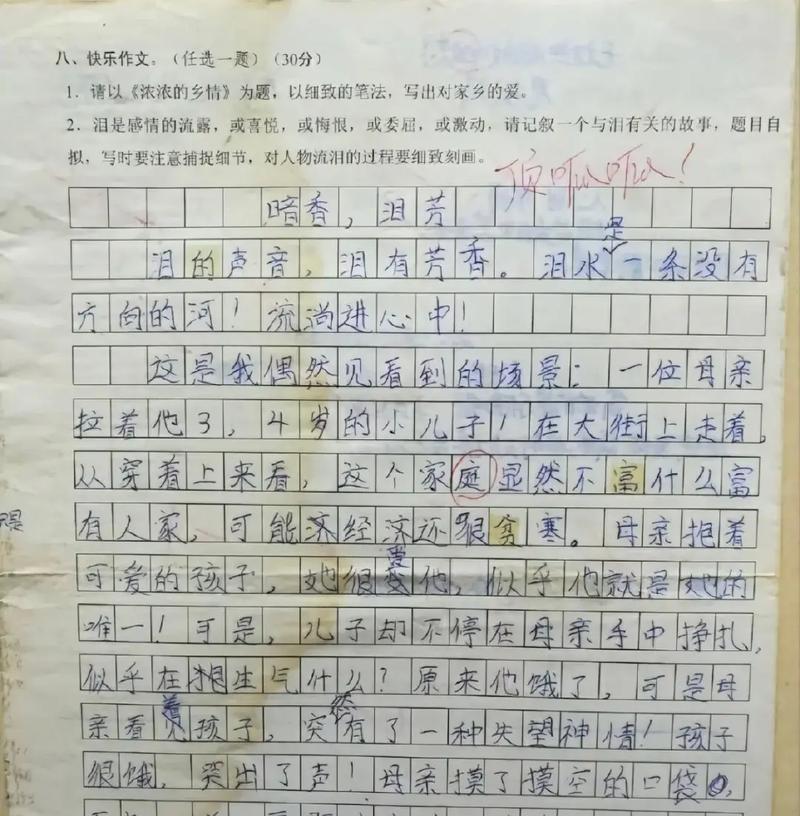 八、快乐作文。（任选一题）（30分）
1．请以《浓浓的乡情》为题，以细致的笔法，写出对家乡的爱。
2．泪是感情的流露，或喜悦，或悔恨，或委屈，或激动，请记叙一个与泪有关的故事，题目自
拟，写时要注意捕捉细节，对人物流泪的过程要细致刻画。
顶呱呱！
暗香，泪芳
泪的声音，泪有芳香。泪水是一条没有
方向的河！流淌进心中！
这是我偶然见看到的场景：一位母亲
拉着他3，4岁的小儿子！在大街上走着，
从穿着上来看，这个家庭显然不富什么富
有人家，可能济经济还很贫寒。母亲抱着
可爱的孩子，她很爱他，似乎他就是她的
唯一！可是，儿子却不停在母亲手中挣扎，
似乎在想生气什么？原来他饿了，可是母
亲看着孩子，突然有了一种失望神情！孩子
很饿，哭出了声！母亲摸了摸空的口袋，